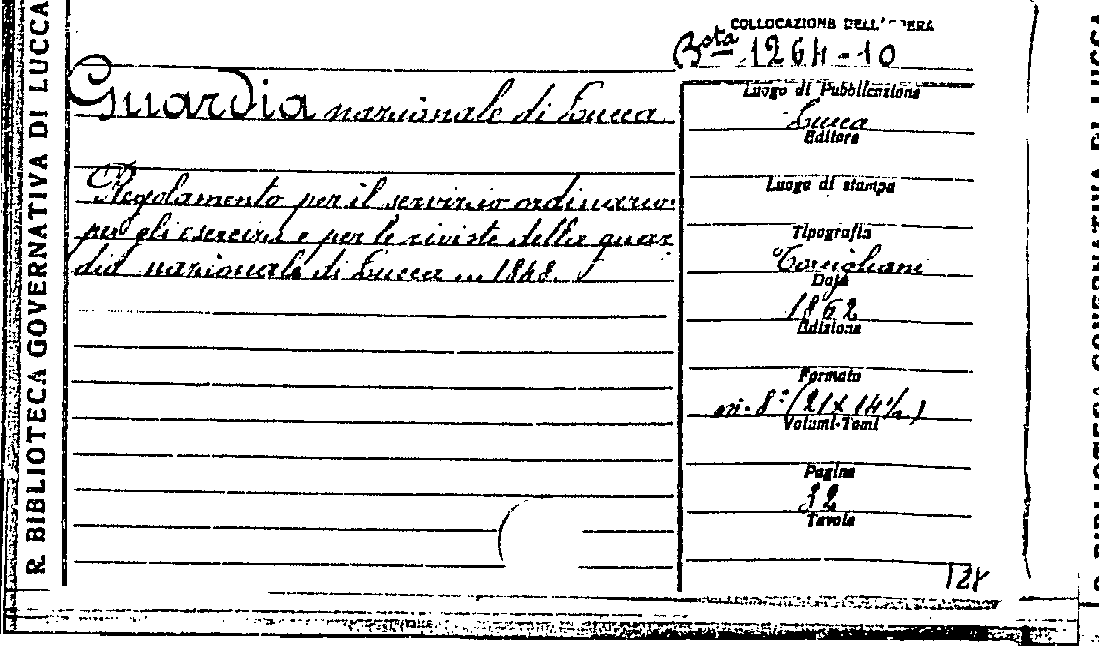 R. BIBLIOTECA GOVERNATIVA DI LUCCA
COLLOCAZIONE DELL'OPERA
Bsta 1264-10
Guardia nazionale di Lucca
Regolamento per il servizio ordinario
per gli esercizi e per le riviste della guar
dia nazionale di Lucca in 1848.
Luogo di Pubblicazione
Lucca
Editore
Luogo di stampa
Tipografia
Torcigliani
Data
1862
Edizione
Formato
in-8° (21 x 14½)
Volumi-Tomi
Pagine
32
Tavole